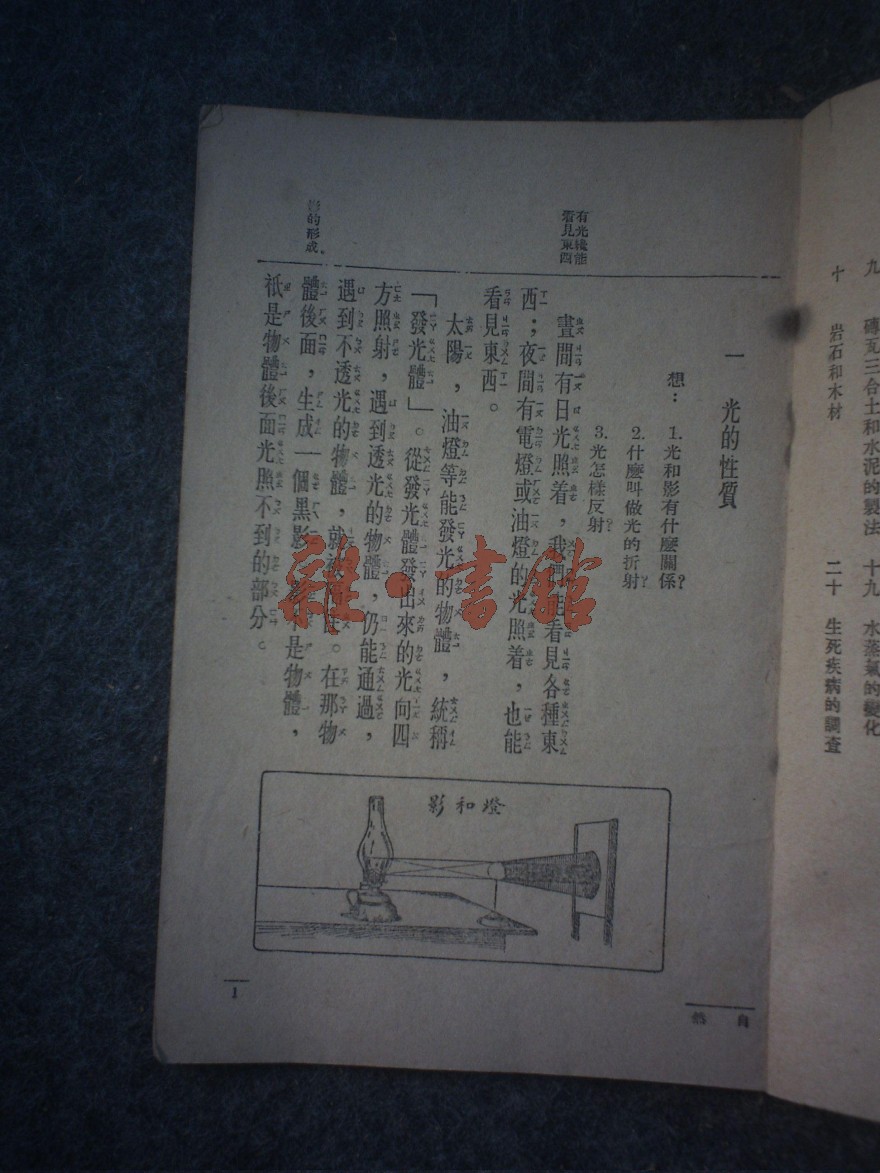 九　磚瓦三合土和水泥的製法　十九　水蒸氣的變化
十　岩石和木材　二十　生死疾病的調查
一　光的性質
想：1.光和影有什麽關係？
2.什麽叫做光的折射？
3.光怎樣反射？
有光纔能
看見東西
晝間有日光照着，我們能看見各種東
西；夜間有電燈或油燈的光照着，也能
看見東西。
太陽，油燈等能發光的物體，統稱
「發光體」。從發光體發出來的光向四
方照射，遇到透光的物體，仍能通過，
遇到不透光的物體，就被　。在那物
影的形成。
體後面，生成一個黑影。　不是物體，
祇是物體後面光照不到的部分。
影和燈
1
自然
雜·書館